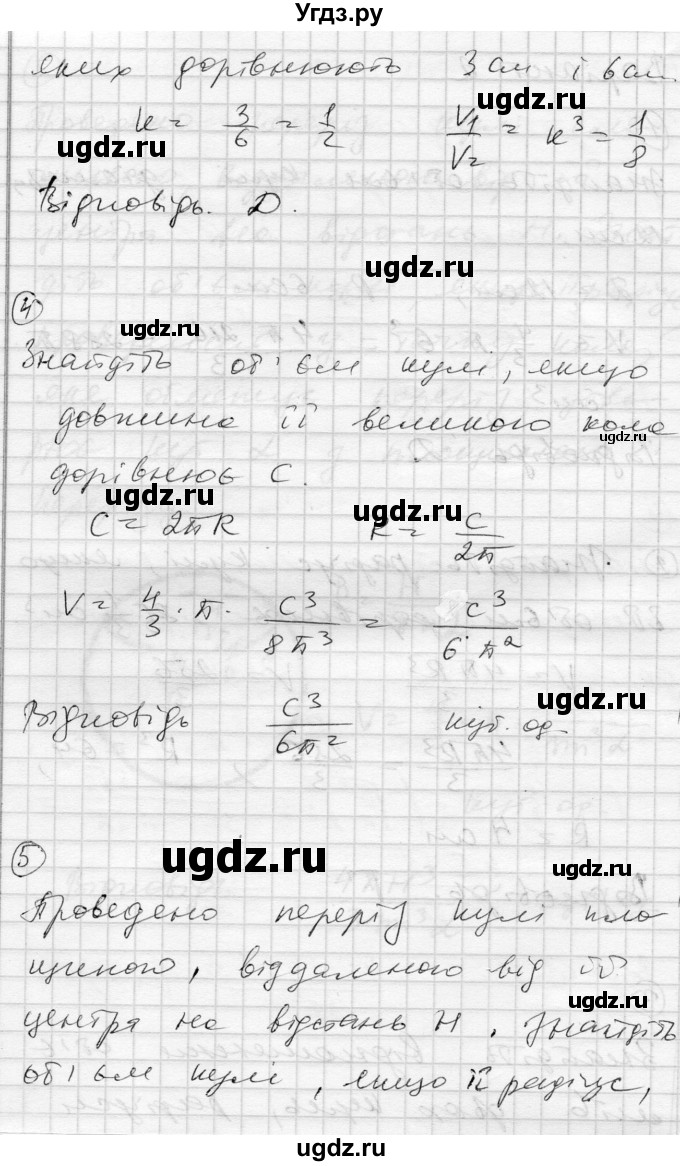 Угдз.ру
яких дорівнюють 3 см і 6 см.
k = 3/6 = 1/2 V1/V2 = k³ = 1/8
ugdz.ru
ugdz.ru
Відповідь. D.
ugdz.ru
4
ugdz.ru
Знайдіть об'єм кулі, якщо
довжина її великого кола
ugdz.ru
дорівнює C.
ugdz.ru
ugdz.ru
C = 2πR R = C/2π.
V = 4/3 · π · C³/8π³ = C³/6·π²
ugdz.ru
ugdz.ru
ugdz.ru
Відповідь C³/6π² куб. од.
5
ugdz.ru
ugdz.ru
Проведено переріз кулі пло
щиною, віддаленою від її
ugdz.ru
ugdz.ru
центра на відстань H. Знайдіть
об'єм кулі, якщо її радіус,
ugdz.ru